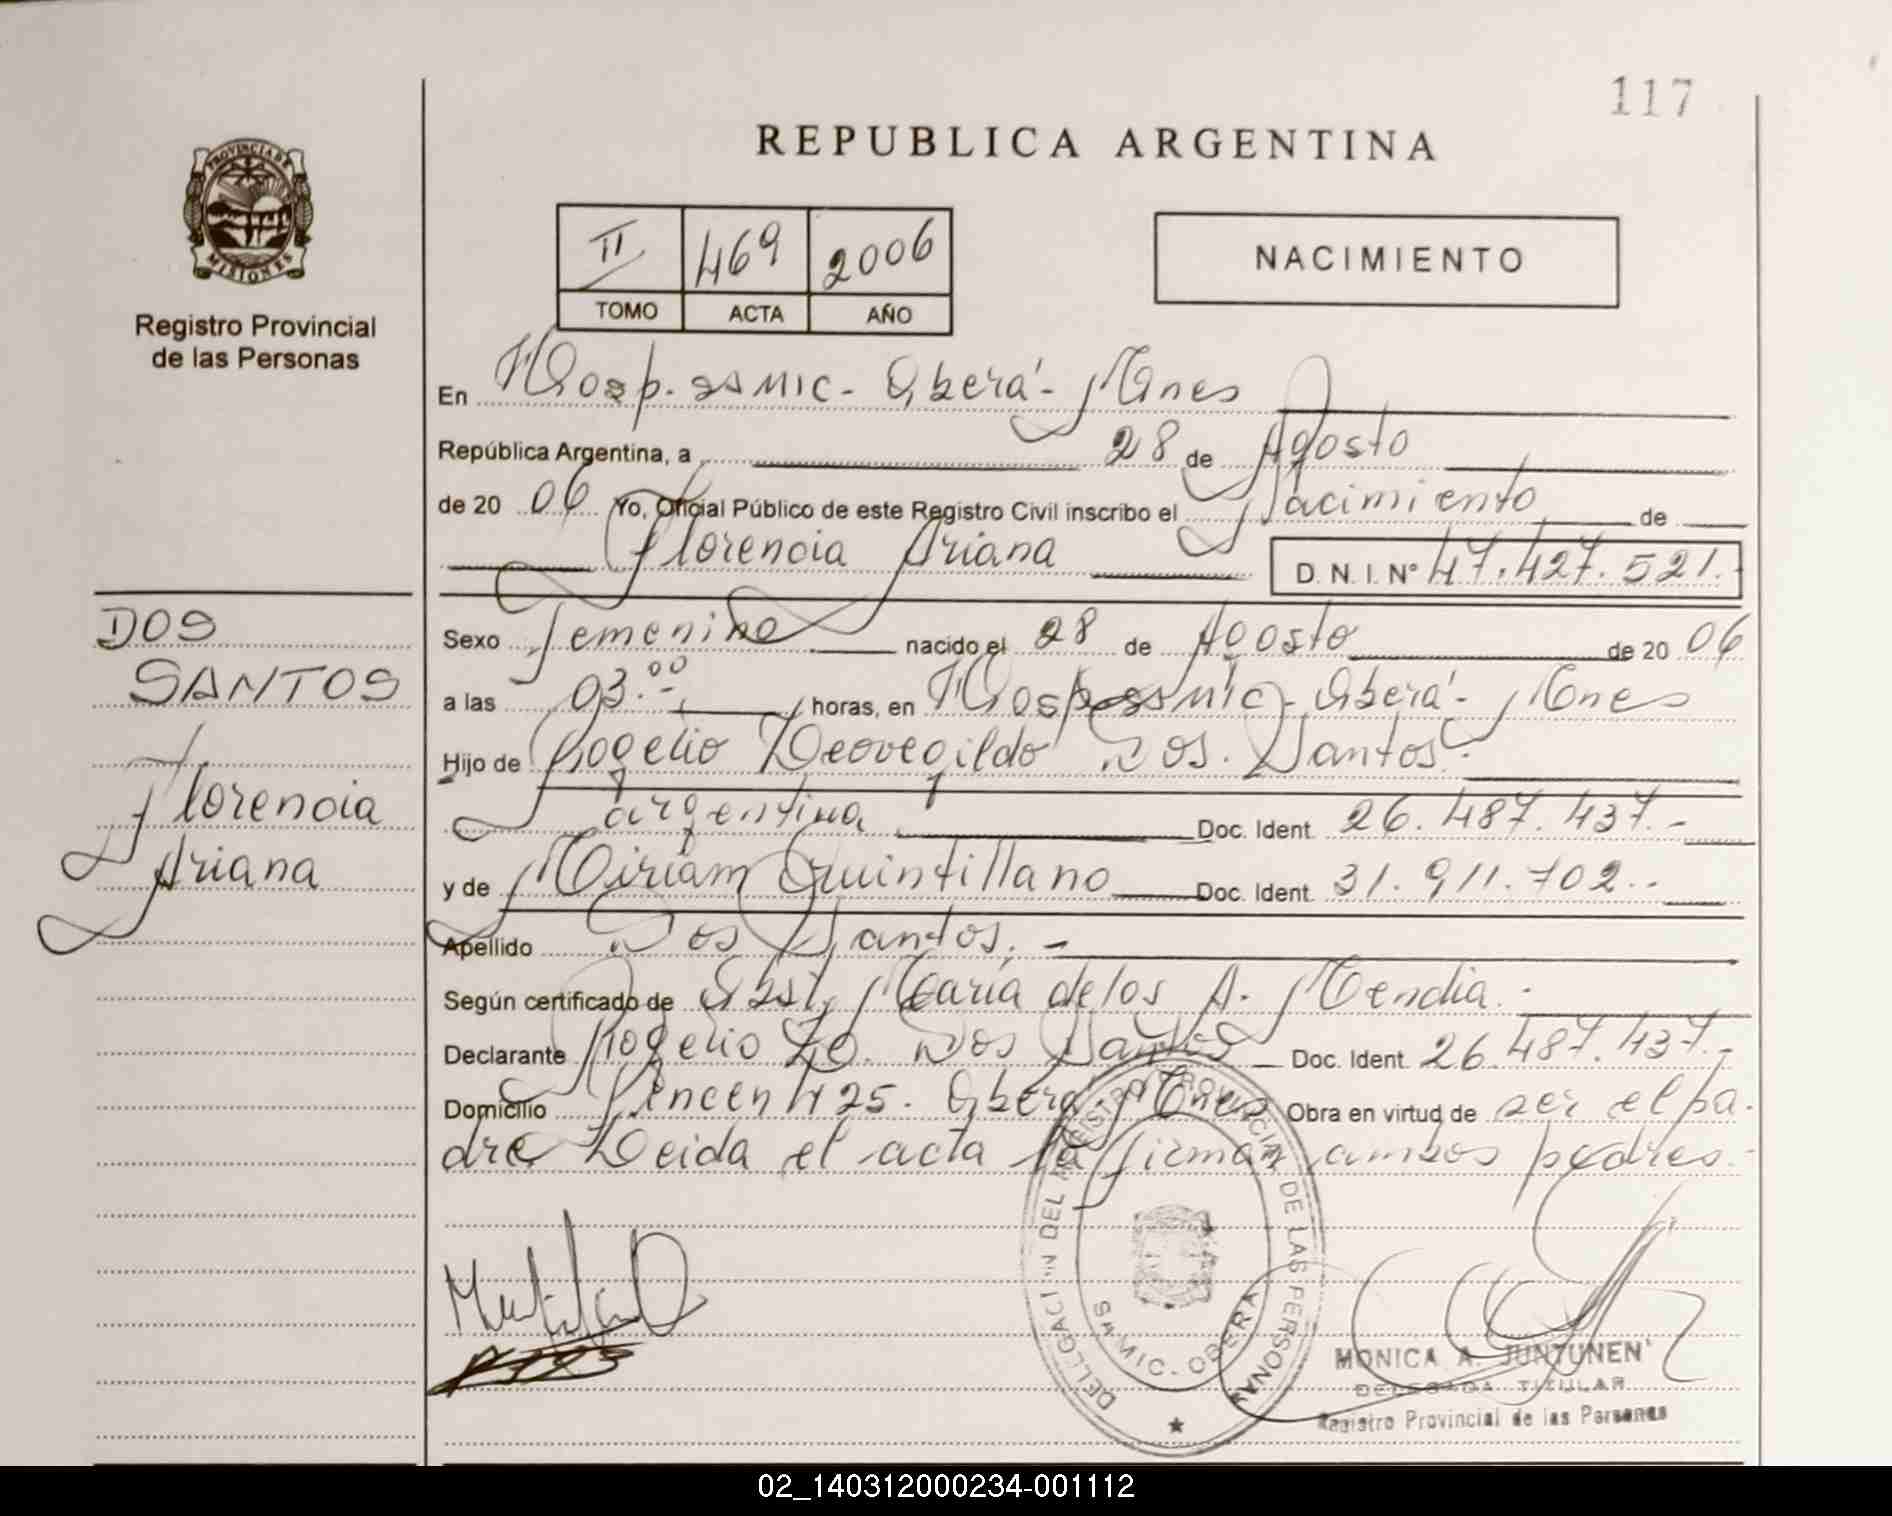 117
REPUBLICA ARGENTINA
PROVINCIA DE
MISIONES
Registro Provincial
de las Personas
II 469 2006
TOMO ACTA AÑO
NACIMIENTO
En Hosp. SAMIC - Oberá - Mnes
República Argentina, a 28 de Agosto
de 20 06 Yo, Oficial Público de este Registro Civil inscribo el Nacimiento de
Florencia Ariana
D. N. I. Nº 47.427.521.-
DOS
SANTOS
Florencia
Ariana
Sexo Femenino nacido el 28 de Agosto de 20 06
a las 03.00 horas, en Hosp. SAMIC - Oberá - Mnes
Hijo de Rogelio Leovegildo Dos Santos.
argentina Doc. Ident. 26.487.437.-
y de Miriam Quintillano Doc. Ident. 31.911.702.-
Apellido Dos Santos. -
Según certificado de Obst. María de los A. Mendia.-
Declarante Rogelio Dos Santos Doc. Ident. 26.487.437.-
Domicilio 425. Oberá Mnes Obra en virtud de ser el pa-
dre Leida el acta la firman ambos padres.-
DEL REGISTRO PROVINCIAL DE LAS PERSONAS
SAMIC - OBERA
MONICA A. JUNTUNEN
DELEGADA TITULAR
Registro Provincial de las Personas
02_140312000234-001112